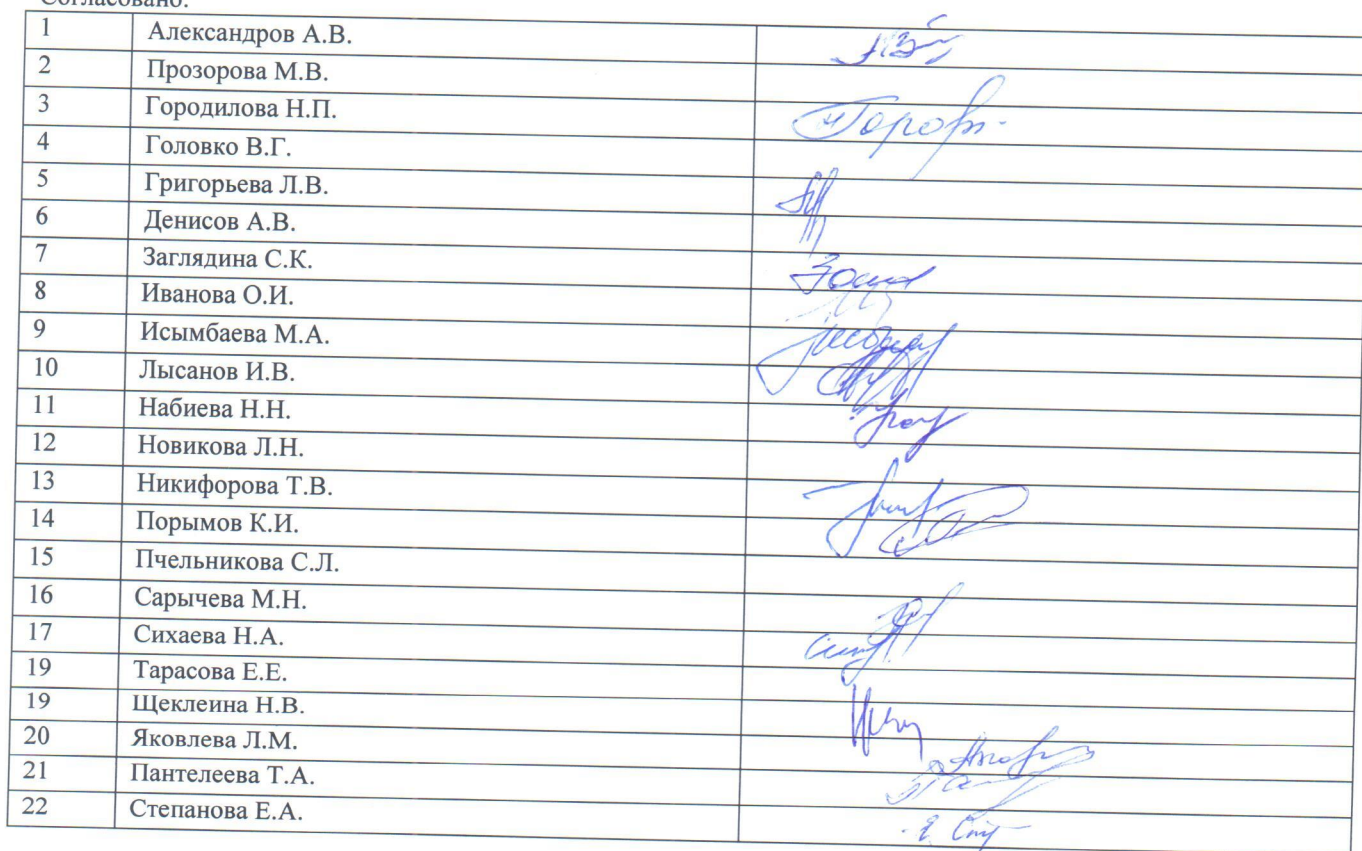 Согласовано:
1 Александров А.В.
2 Прозорова М.В.
3 Городилова Н.П.
4 Головко В.Г.
5 Григорьева Л.В.
6 Денисов А.В.
7 Заглядина С.К.
8 Иванова О.И.
9 Исымбаева М.А.
10 Лысанов И.В.
11 Набиева Н.Н.
12 Новикова Л.Н.
13 Никифорова Т.В.
14 Порымов К.И.
15 Пчельникова С.Л.
16 Сарычева М.Н.
17 Сихаева Н.А.
19 Тарасова Е.Е.
19 Щеклеина Н.В.
20 Яковлева Л.М.
21 Пантелеева Т.А.
22 Степанова Е.А.